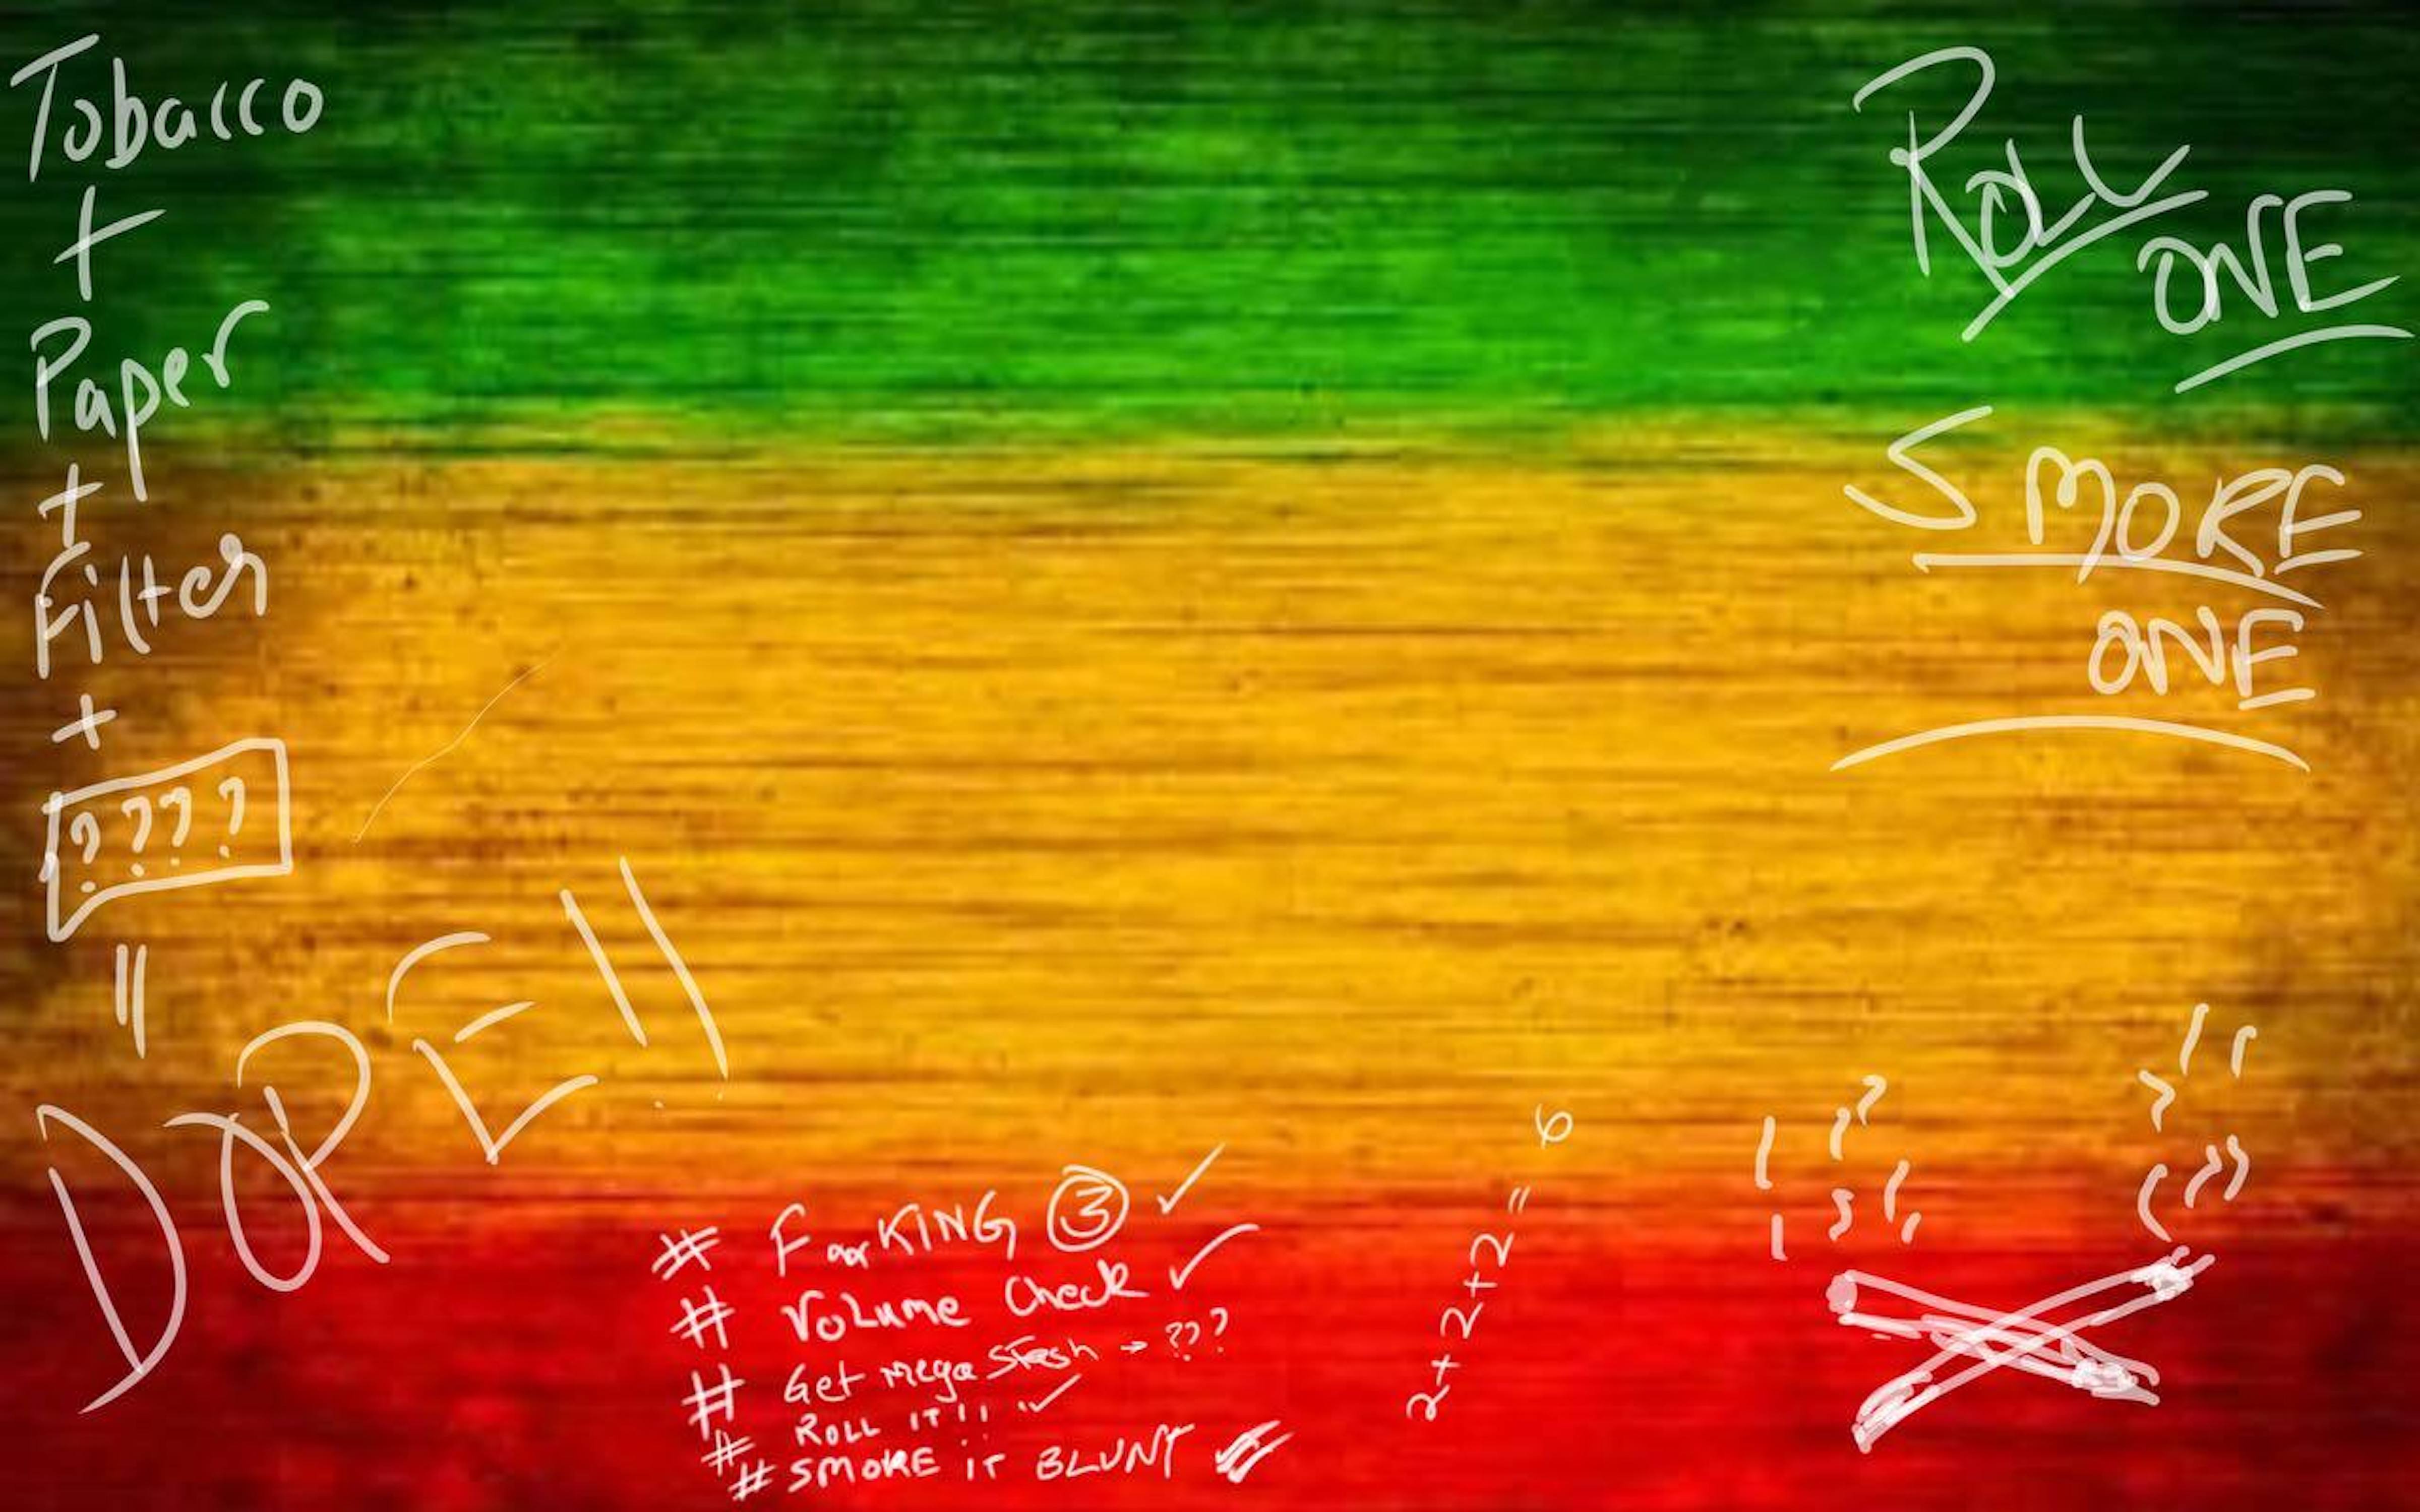 Tobacco
+
Paper
+
Filter
+
????
=
DOPE!!
ROLL
ONE
SMOKE
ONE
# FaarKING 3 ✓
# Volume Check ✓
# Get Mega Stash → ???
# ROLL IT!! ✓
# SMOKE IT BLUNT
2+2+2=6